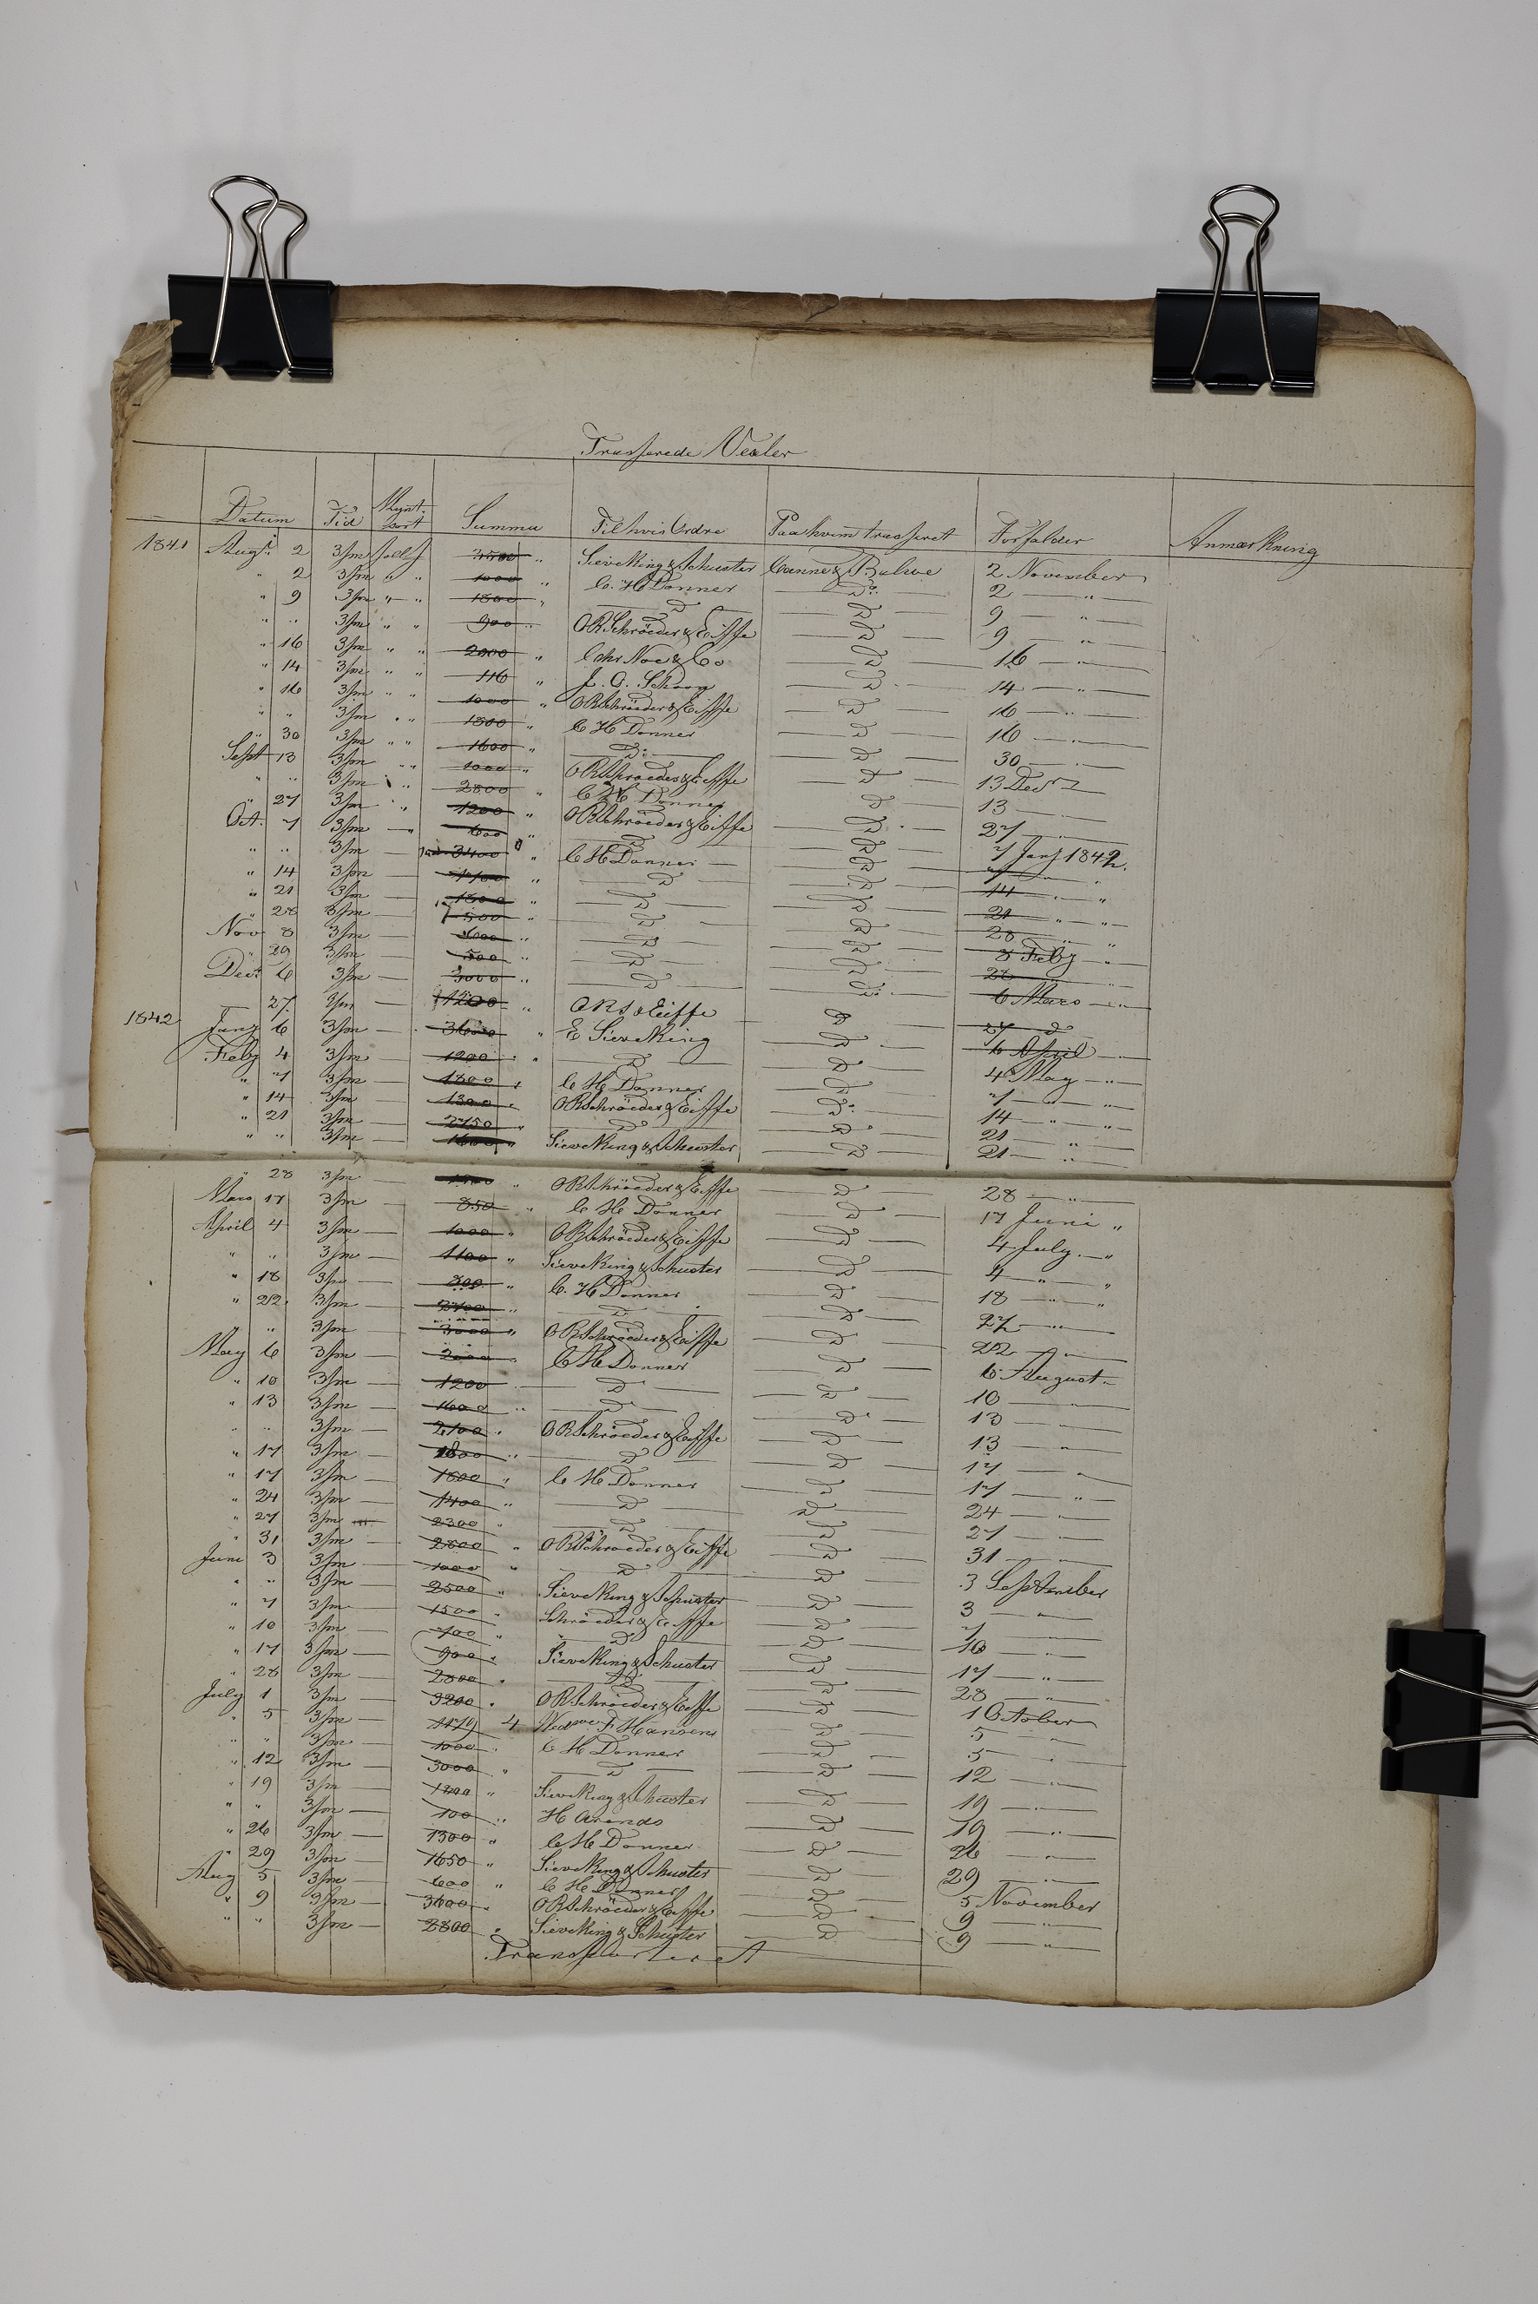 Trasserede Vexler
Datum Tid Mynt sort Summa Til hvis Ordre Paa hvem trasseret Forfalder Anmærkning
1841 Augt 2 3/m 3500 " Sieveking & Schuster Canne & Balwe 2 November
" 2 3/m " " 1000 " C. H Donner Do. 2 — " —
" 9 3/m " " 1800 " — D — — D — 9 — " —
" " 3/m " " 900 " O R Schröeder & Eiffe — D — 9 — " —
" 16 3/m " " 2000 " Chr Noe & Co — D — 16 — " —
" 14 3/m " " 116 " — D — 14 — " —
" 16 3/m " " 1000 " O R Schröeder & Eiffe — D — 16 — " —
" " 3/m " " 1800 C H Donner — D — 16 — " —
" 30 3/m " " 1600 " — Do — — D — 30 — " —
Sept 13 3/m " " 1000 " O R Schroeder & Eiffe — D — 13 Decr
" " 3/m " 2800 " C H Donner — D — 13 —
" 27 3/m " 1200 " O R Schroeder & Eiffe — D — 27 — " —
Oct. 7 3/m — 600 " — D — — D — 7 Jany 1842.
" " 3/m — 3400 " C H Donner — — D — 7 — " "
" 14 3/m — " — D — — D — 14 — " "
" 21 3/m — 1800 " — D — — D — 21 — " "
" 28 3/m — 500 " — D — — D — 28 — " "
Nov 8 3/m — " — D — — D — 8 Feby — " —
" 29 3/m — 500 " — D — — D —
Decr 6 3/m — 3000 " — D — — D — 6 Maro — " —
27. — 1200 " O R S & Eiffe D 27 D
1842 Jany 6 3/m — 3600 " E Sieveking — D — 6 April — " —
Feby 4 3/m — 1200 " — D — — D — 4 May — " —
" 7 3/m — 1800 " C H Donner — D — 7 — " "
" 14 3/m — 1300 " O R Schröeder & Eiffe — D — 14 — " "
" 21 3/m — 2750 " — D — — D — 21 — " —
" " 3/m — 1600 " Sieveking & Schuster — D — 21 — " —
" 28 3/m — " O R Schröeder & Eiffe — D — 28 — " —
Maro 17 3/m — 850 " C H Donner — D — 17 Juni "
April 4 3/m — 1000 " O R Schröeder & Eiffe — D — 4 July. — "
" " 3/m — 1100 " Sieveking & Schuster — D — 4 — " "
" 18 3/m — 800 " C. H Donner — D — 18 — " "
" 22. 3/m — 2700 " — D — — D — 22 — " —
" " 3/m — 3000 " O R Schröeder & Eiffe — D — 22 — " —
May 6 3/m — C H Donner — D — 6 August —
" 10 3/m — 1200 — D — — D — 10 — " —
" 13 3/m — 1600 " — D — — D — 13 — " —
" " 3/m — 2100 " O R Schröeder & Eiffe — D — 13 — " —
" 17 3/m — 1800 " — D — — D — 17 — " —
" 17 3/m — 1800 " C H Donner — D — 17 — " —
" 24 3/m — 1400 " — D — — D — 24 — " —
" 27 3/m — 2300 " — D — — D — 27 — " —
" 31 3/m — 2800 " O R Schroeder & Eiffe — D — 31 — " —
Juni 3 3/m — 1000 " — D — — D — 3 September
" " 3/m — 2500 " Sieveking & Schuster — D — 3 — " —
" 7 3/m — 1500 " Schröeder & Eiffe — D — 7 — " —
" 10 3/m — 700 " — D — — D — 10 — " —
" 17 3/m — 900 " Sieveking & Schuster — D — 17 — " —
" 28 3/m — 2800 " — D — — D — 28 — " —
July 1 3/m — 3200 " O R Schröeder & Eiffe — D — 1 October
" 5 3/m — 1179 4 F Hansens — D — 5 — " —
" " 3/m — 1000 " C H Donner — D — 5 — " —
" 12 3/m — 3000 " — D — — D — 12 — " —
" 19 3/m — 1200 " Sieveking & Schuster — D — 19 — " —
" " 3/m — 100 " H Arends — D — 19 — " —
" 26 3/m — 1300 " C H Donner — D — 26 — " —
" 29 3/m — 1650 " Sieveking & Schuster — D — 29 — " —
Aug 5 3/m — 600 " C H Donner — D — 5 November
" 9 3/m — 3600 " O R Schröeder & Eiffe — D — 9 — " —
" " 3/m — 2800 " Sieveking & Schuster — D — 9 — " —
Transporteret